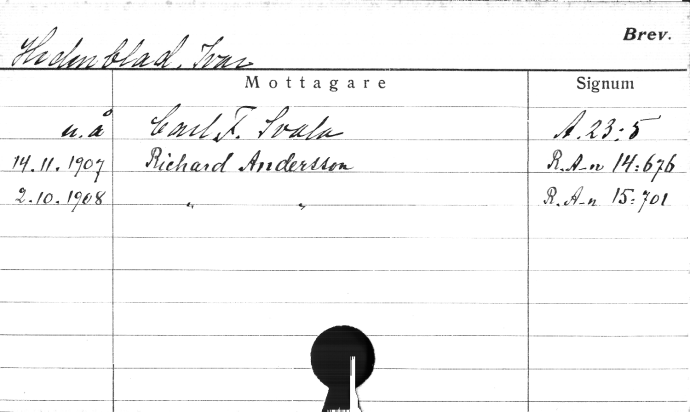 Brev.
Hedenblad, Ivar
Mottagare Signum
u.å Carl F. Svala A. 23:5
14.11.1907 Richard Andersson R.A-n 14:676
2.10.1908 " " R.A-n 15:701